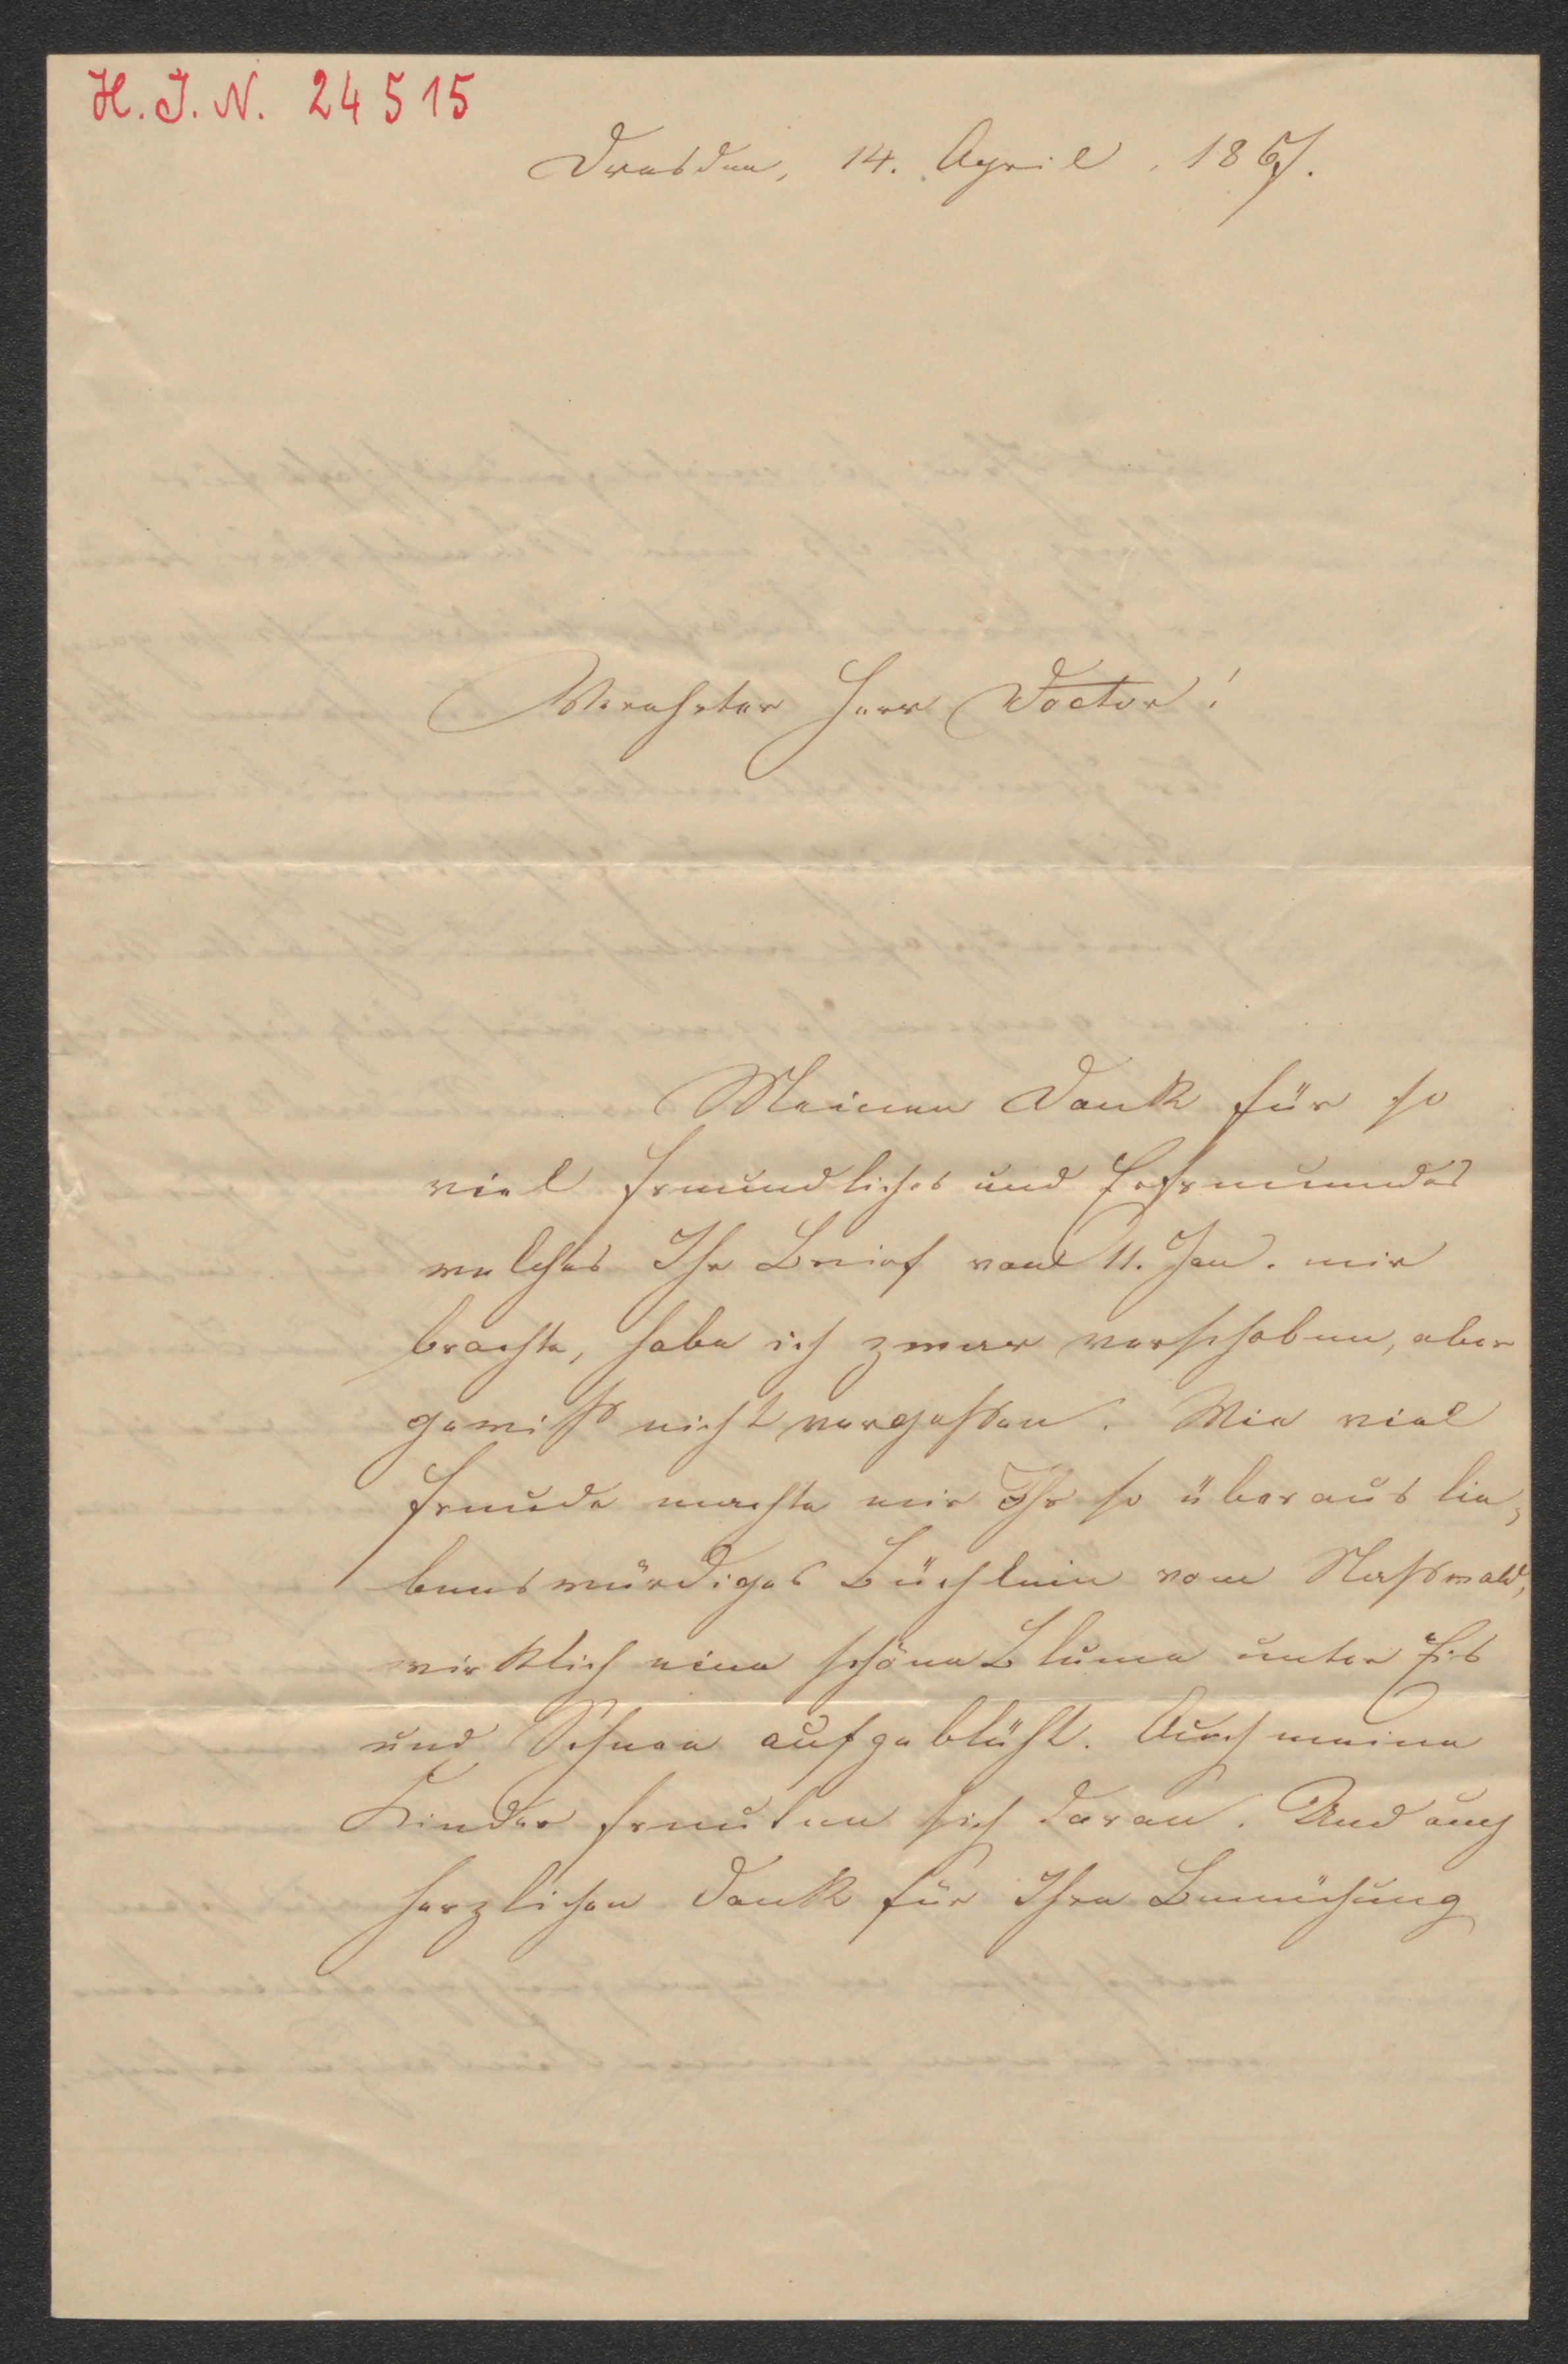 H. I. N. 24515
Dresden, 14. April. 1867.
Verehrter Herr Doctor!
Meinen Dank für so
viel Freundliches und Ehrenendes
welches Ihr Brief vom 11. Jan. mir
brachte, habe ich zwar verschoben, aber
gewiß nicht vergessen. Wie viel
Freude machte mir Ihr so überaus lie-
benswürdiges Büchlein vom Naßwald,
wirklich eine schöne Blume unter Eis
und Schnee aufgeblüht. Auch meine
Kinder freuten sich daran. Und auch
herzlichen Dank für Ihre Bemühung